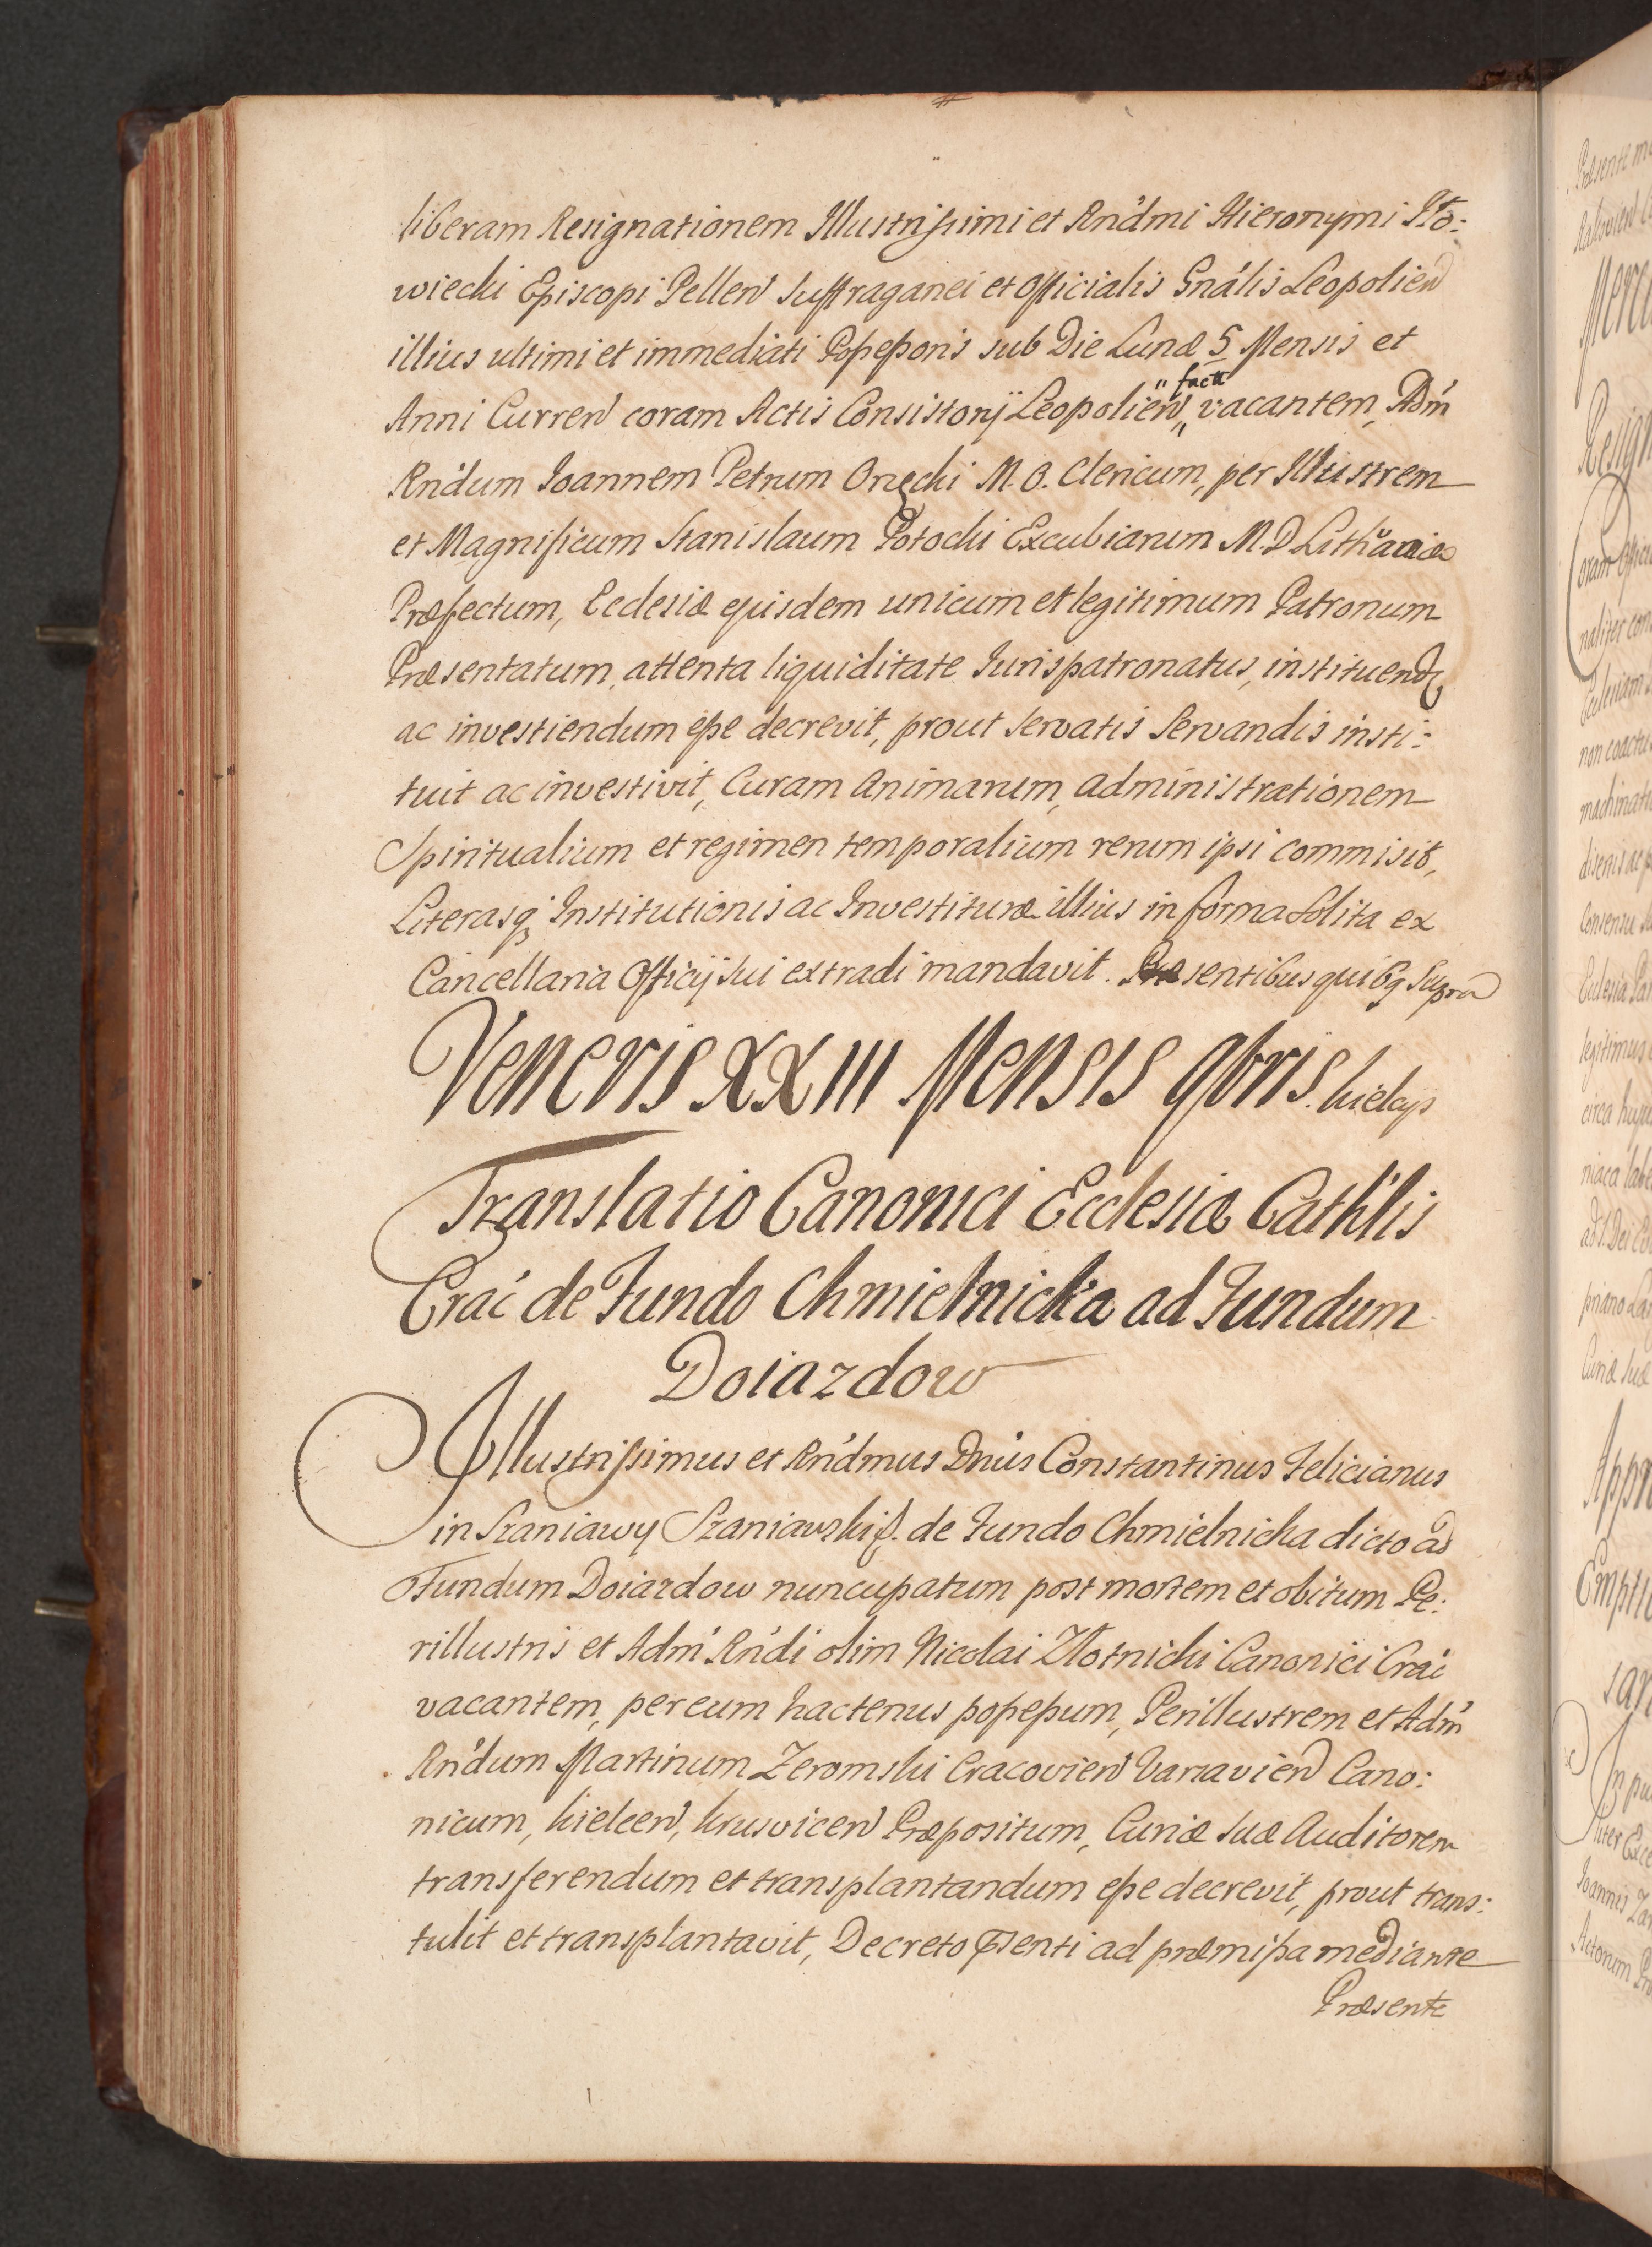 liberam Resignationem Illustrissimi et Rndmi Hieronymi
wiecki Episcopi Pellen Suffraganei et Officialis Gnalis Leopolien
illius ultimi et immediati Possessoris sub Die Lunæ 5 Mensis et
Anni Curren coram Actis Consistorij Leopolien facta vacantem, Adm
Rndum Ioannem Petrum M. O. Clericum, per Illustrem
et Magnificum Stanislaum Potocki Excubiarum M. D. Lithuaniæ
Præfectum, Ecclesiæ ejusdem unicum et legitimum Patronum
Præsentatum, attenta liquiditate Jurispatronatus, instituend
ac investiendum esse decrevit, prout servatis Servandis insti:
tuit ac investivit, Curam Animarum, administrationem
Spiritualium et regimen temporalium rerum ipsi commisit,
Literasq Institutionis ac Investituræ illius in forma solita ex
Cancellaria Officij sui extradi mandavit. Præsentibus quibq supra
Veneris XXIII Mensis 9bris.
Translatio Canonici Ecclesiæ Cathlis
Crac de Fundo Chmielnicka ad Fundum
Doiazdow
Illustrissimus et Rndmus Dnus Constantinus Felicianus
in Szaniawy Szaniawski de Fundo Chmielnicka dicto ad
Fundum Doiazdow nuncupatum post mortem et obitum Pe:
rillustris et Adm Rndi olim Nicolai Zlotnicki Canonici Crac
vacantem, per eum hactenus possessum, Perillustrem et Adm
Rndum Martinum Zeromski Cracovien Varsavien Cano:
nicum, Kielcen, Krusvicen Præpositum, Curiæ suæ Auditorem
transferendum et transplantandum esse decrevit, prout trans:
tulit et transplantavit, Decreto Psenti ad præmissa mediante
Præsente